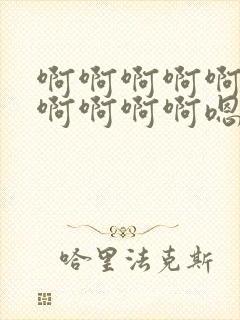 啊啊啊啊啊
啊啊啊啊嗯
哈里法克斯